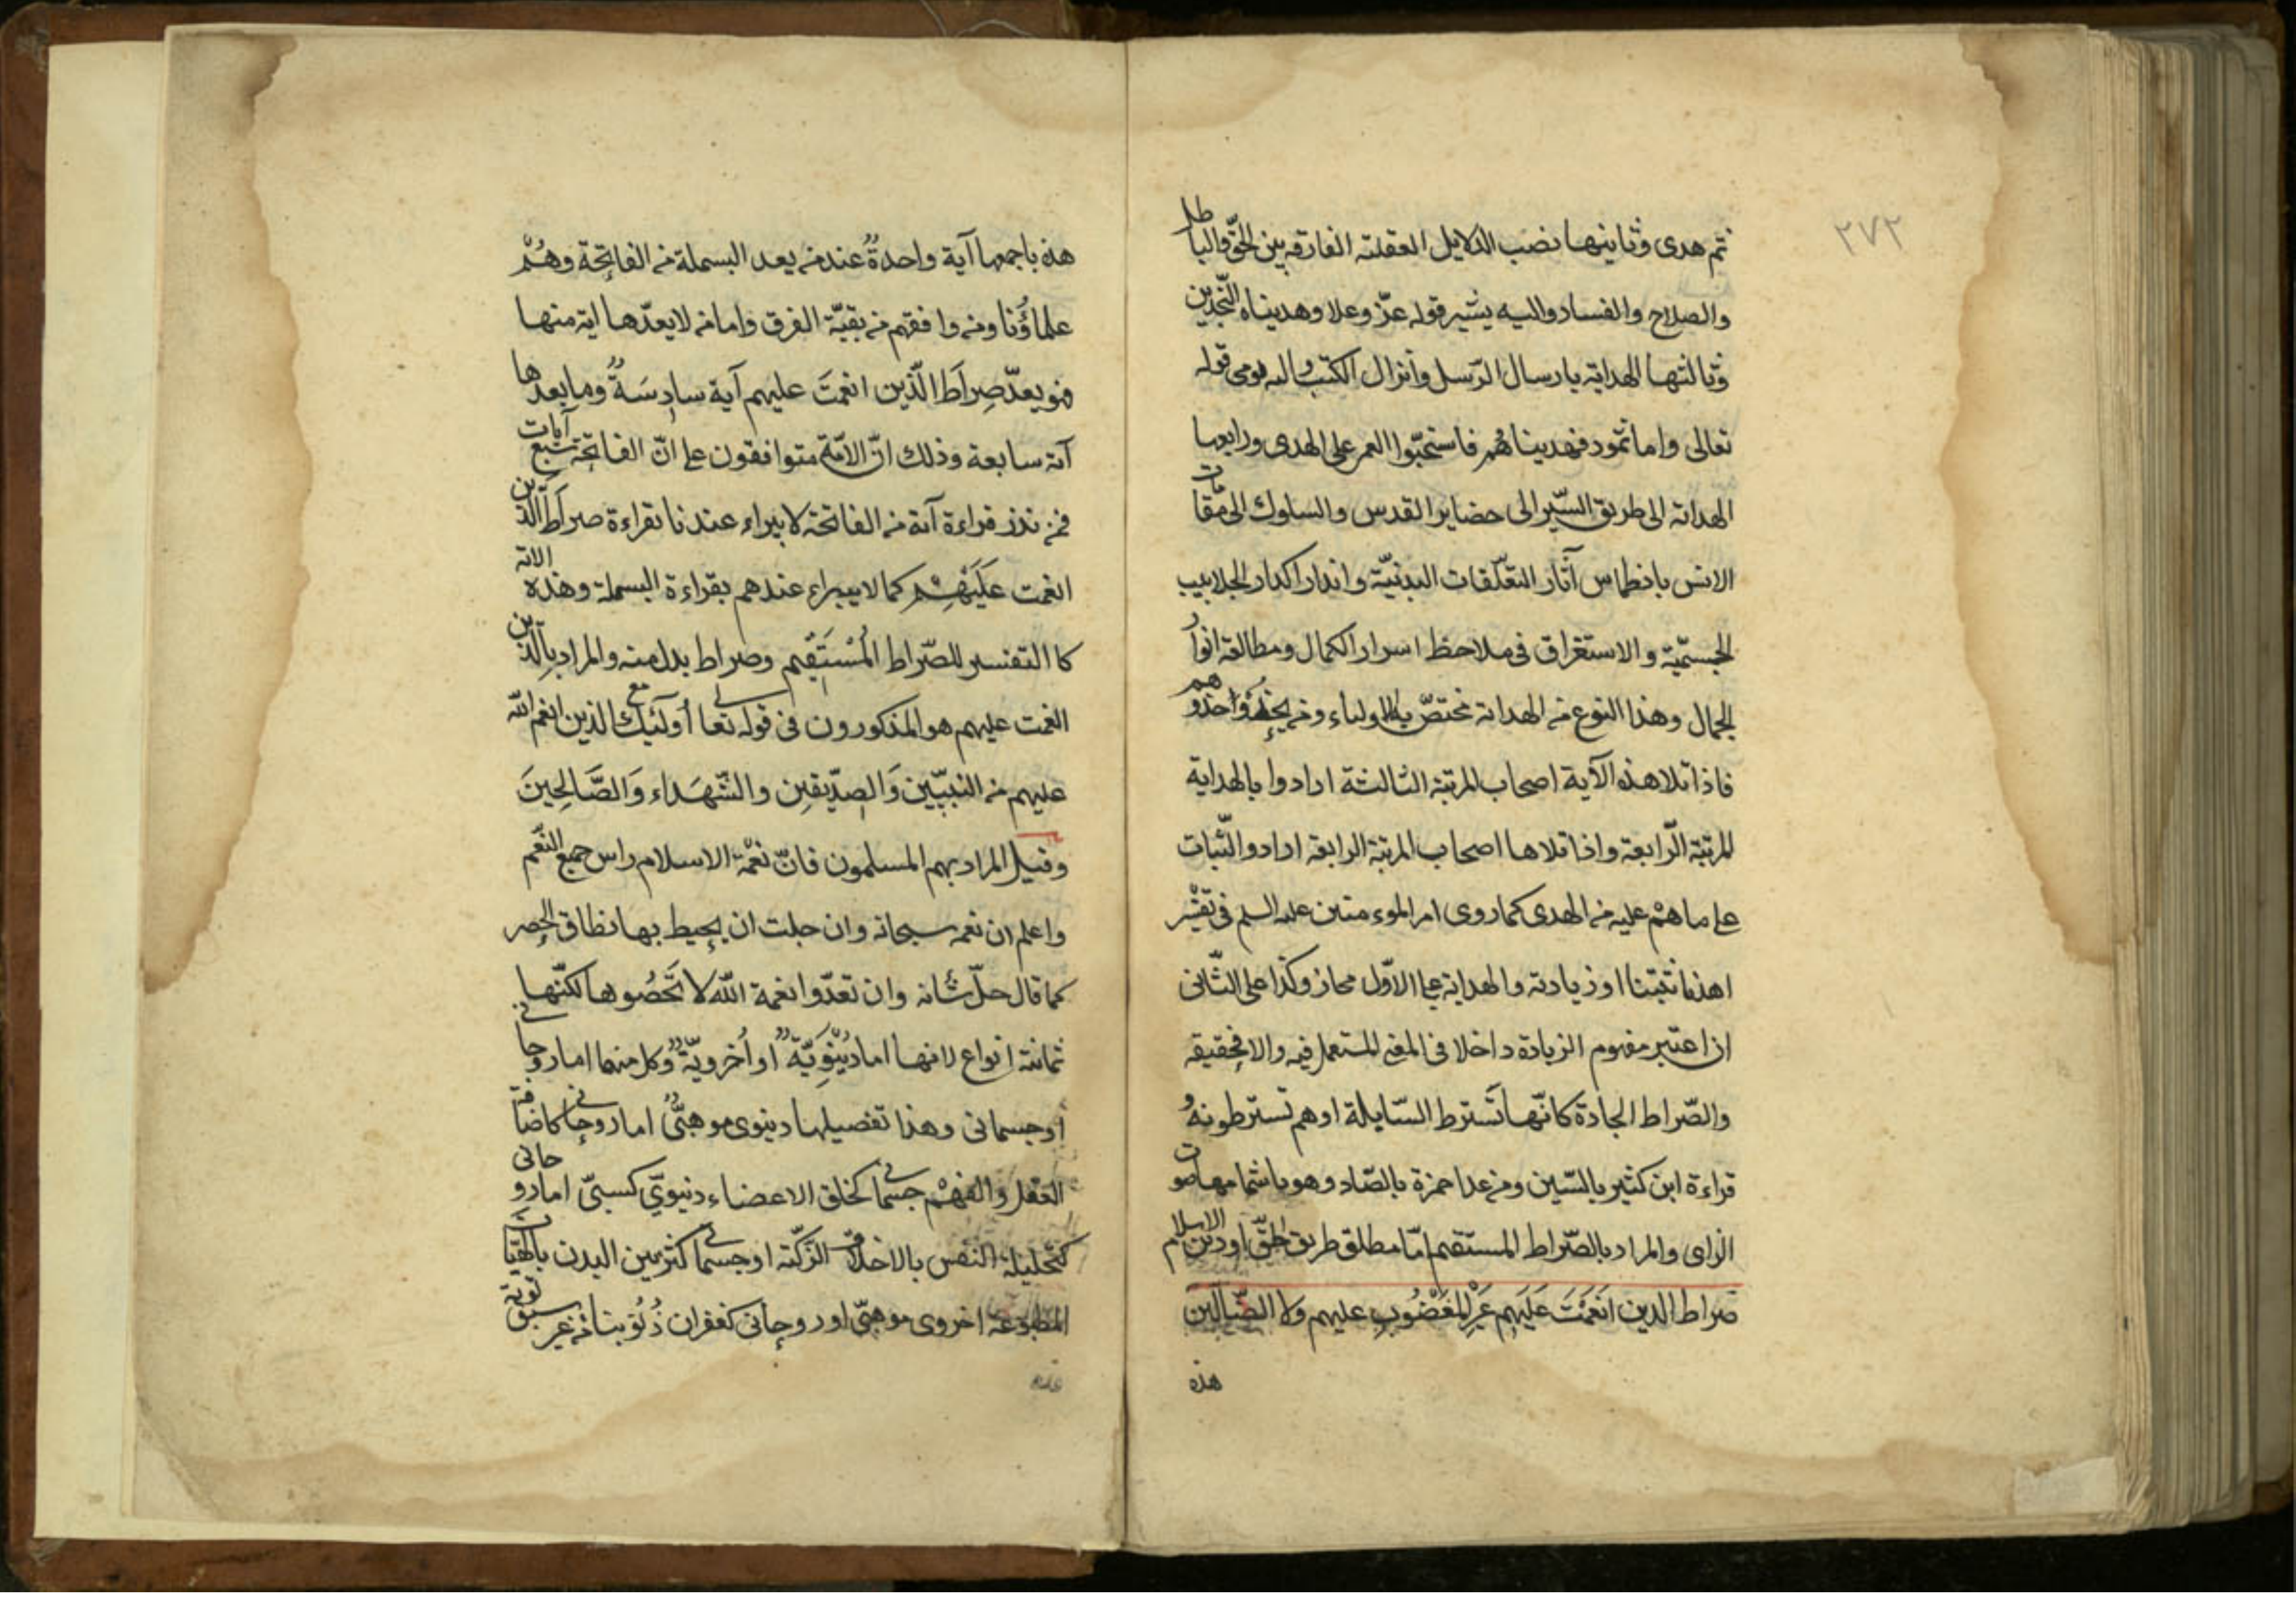 ٢٧٢
ثم هدى وثانيها نصب الدلايل العقلية الفارقه بين الحقّ والباطل
والصلاح والفساد واليه يشير قوله عزّ وعلا وهديناه النّجدين
وثالثها الهداية بارسال الرّسل وأنزال الكتب واليه يومى قوله
تعالى واما ثمود فهديناهُم فاستحبّوا العمى على الهدى ورابعها
الهداية الى طريق السّير الى حضاير القدس والسلوك الى مقامات
الانس بانطماس آثار التعلّقات البدنيّة واندار اكدار الجلابيب
الجسميّة والاستغراق فى ملاحظ اسرار الكمال ومطالعة انوار
الجمال وهذا النوع من الهداية مختصّ به الاولياء ومن يحذو حذوهم
فاذا تلا هذه الآية اصحاب المرتبة الثالثة ارادوا بالهداية
المرتبة الرّابعة واذا تلاها اصحاب المرتبة الرابعة ارادوا الثّبات
على ما هُم عليه من الهدى كما روى امير الموءمنين عليه السلم فى تفسير
اهدنا ثبّتنا او زيادته والهداية على الاوّل مجاز وكذا على الثّانى
ان اعتبر مفهوم الزيادة داخلا فى المعنى المستعمل فيه والا فحقيقه
والصّراط الجادة كانّها تَسترط السّايلة او هم تسترطونهُ و
قراءة ابن كثير بالسّين ومن عدا حمزة بالصّاد وهو باشمامها صوت
الزاى والمراد بالصّراط المستقيم امّا مطلق طريق الحقّ او دين الاسلام
صراط الذين انعَمْتَ عَلَيهِم غَيرِ المغضُوبِ عليهم وَلا الضّالّين
هذه
هذه باجمعها آية واحدةٌ عند من يعد البسملة من الفاتِحَة وهُمْ
علماؤُنا ومن وافقهم من بقيّة الفرق واما من لا يعدّها اية منها
فهو يعدّ صِراَط الّذين انعمتَ عليهم آية سادِسَةً وما بعدها
آية سابعة وذلك انّ الامّة متوافقون على انّ الفاتِحة سَبع آيات
فمن نذر قراءة آية من الفاتحة لا يبراء عندنا بقراءة صراط الّذين
انعمت عَلَيْهِمْ كما لا يبراء عندهم بقراءة البسملة وهذه الاية
كا التفسير للصّراط المُسْتَقيم وصراط بدل منه والمراد بالّذين
انعمت عليهم هو المذكورون فى قوله تعالى أولَئِكَ مع الذين انعم الله
عليهم من النبيّين وَالصِدّيقين والشّهَداء وَالصَّالحِينَ
وقيل المراد بهم المسلمون فانّ نعْمة الاسلام راس جميع النّعَم
واعلم ان نعمه سبحانه وان جلت ان يحيط بها نطاق الحصر
كما قال جلّ شانه وان تعدّوا نعمة اللّه لا تحصُوها لكنّها
ثمانية انواع لانها اما دُنْيَوِيّة او أُخرويّة وكل منهما اما روحانى
او جسمانى وهذا تفصيلها دنيوى موهبىٌّ اما روحانى كافاضة
العقل والفهْم جسمانى كخلق الاعضاء دنيويّ كسبىّ اما روحانى
كتحلية النفس بالاخلاق الزكيّة او جسمانى كتزيين البدن بالهيئات
المطبوعة اخروى موهبىّ او روحانى كغفران ذُنوُبنا من غير سبق توبة